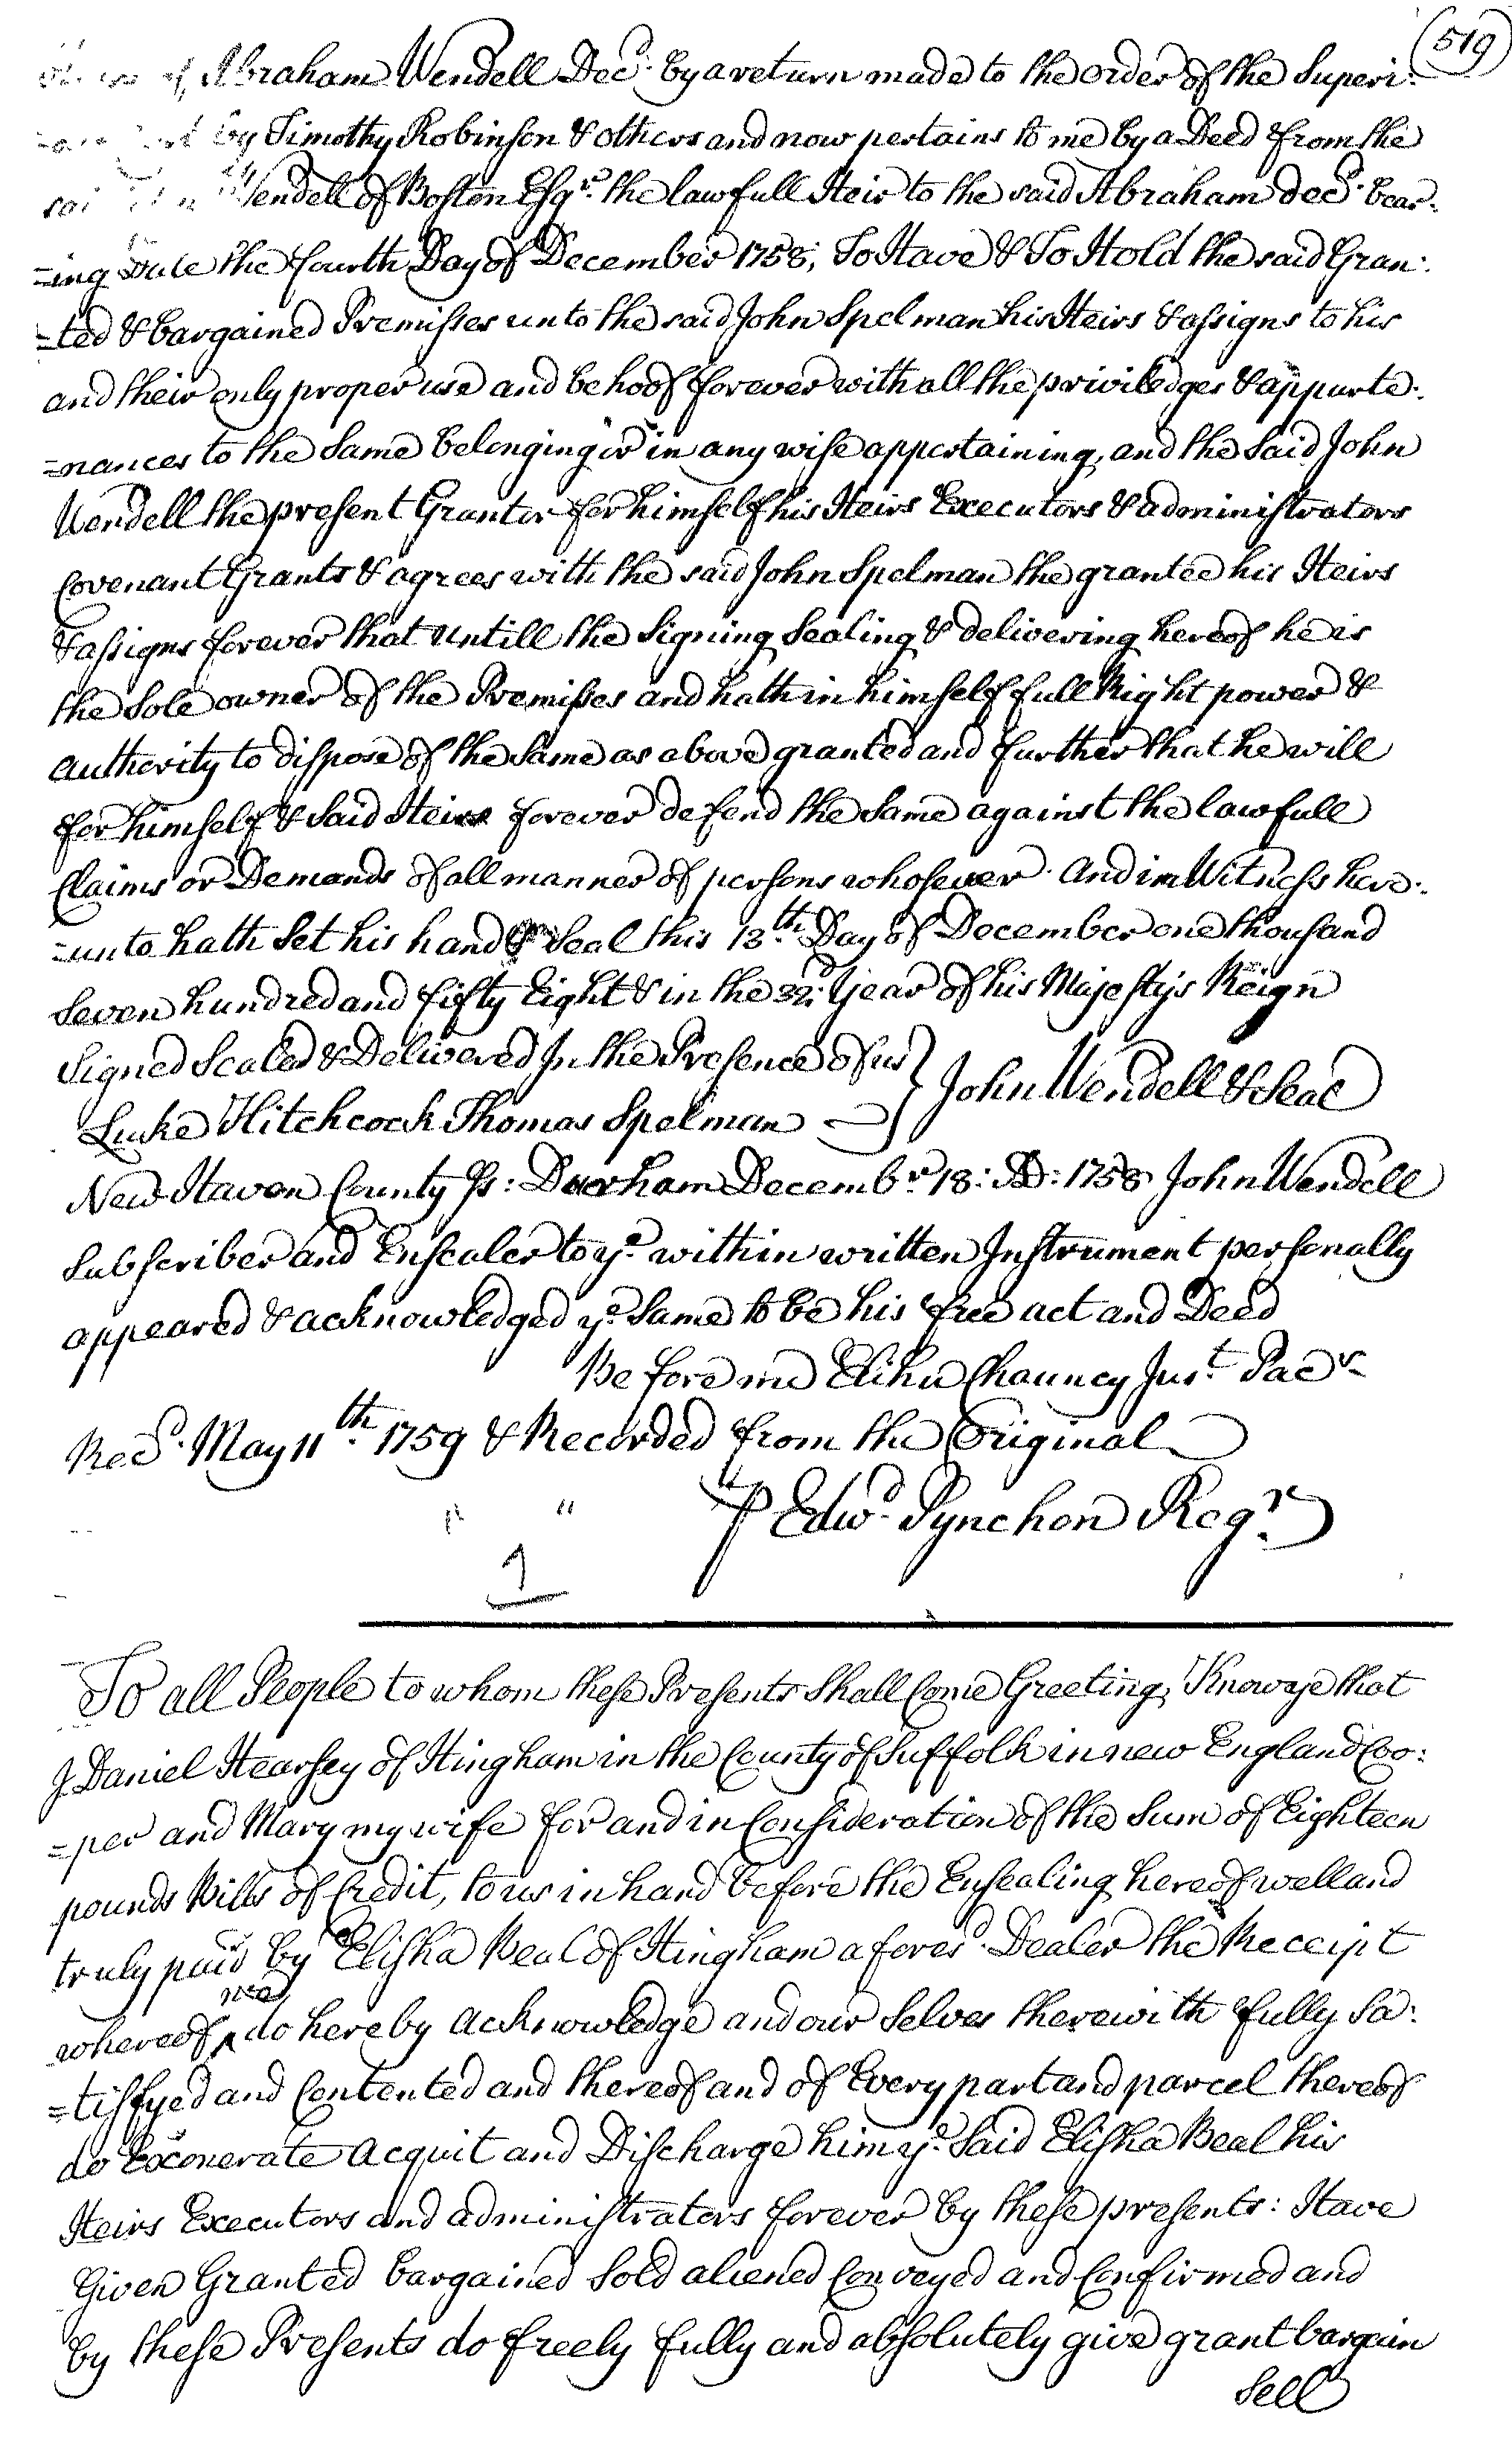 (519)
of Abraham Wendell Decd. by a return made to the order of the Superi:
by Timothy Robinson & others and now pertains to me by a Deed from the
Wendell of Boston Esqr. the lawfull Heir to the said Abraham decd. bear:
=ing Date the fourth Day of December 1758; To Have & To Hold the said Gran:
=ted & bargained Premisses unto the said John Spelman his Heirs & assigns to his
and their only proper use and behoof forever with all the priviledges & appurte:
=nances to the Same belonging or in any wise appertaining, and the Said John
Wendell the present Grantor for himself his Heirs Executors & administrators
Covenant Grants & agrees with the said John Spelman the grantee his Heirs
& assigns forever that untill the Signing Sealing & delivering hereof he is
the Sole owner of the Premisses and hath in himself full Right power &
authority to dispose of the Same as above granted and further that he will
for himself & Said Heirs forever defend the Same against the lawfull
Claims or Demands of all manner of persons whosoever. And in Witness here:
=unto hath Set his hand & Seal this 13th. Day of December one thousand
Seven hundred and fifty Eight & in the 32d. Year of his Majestys Reign
Signed Sealed & Delivered In the Presence of us }
John Wendell & Seal
Luke Hitchcock Thomas Spelman
New Haven County Ss: Durham Decembr. 18: AD: 1758 John Wendell
Subscriber and Ensealer to ye. within written Instrument personally
appeared & acknowledged ye. Same to be his free act and Deed
Before me Elihu Chauncy Just. Pacs
Recd. May 11th. 1759 & Recorded from the Original
" "
P Edwd. Pynchon Regr.
1
To all People to whom these Presents Shall Come Greeting, Know ye that
I Daniel Hearsey of Hingham in the County of Suffolk in new England Coo:
=per and Mary my wife for and in Consideration of the Sum of Eighteen
pounds Bills of Credit, to us in hand before the Ensealing hereof well and
truly paid by Elisha Beal of Hingham aforesd. Dealer the Receipt
whereof ^we do hereby acknowledge and our Selves therewith fully Sa:
=tisfyed and Contented and thereof and of Every part and parcel thereof
do Exonerate acquit and Discharge him ye. Said Elisha Beal his
Heirs Executors and administrators forever by these presents: Have
Given Granted bargained Sold aliened Conveyed and Confirmed and
by these Presents do freely fully and absolutely give grant bargain
Sell